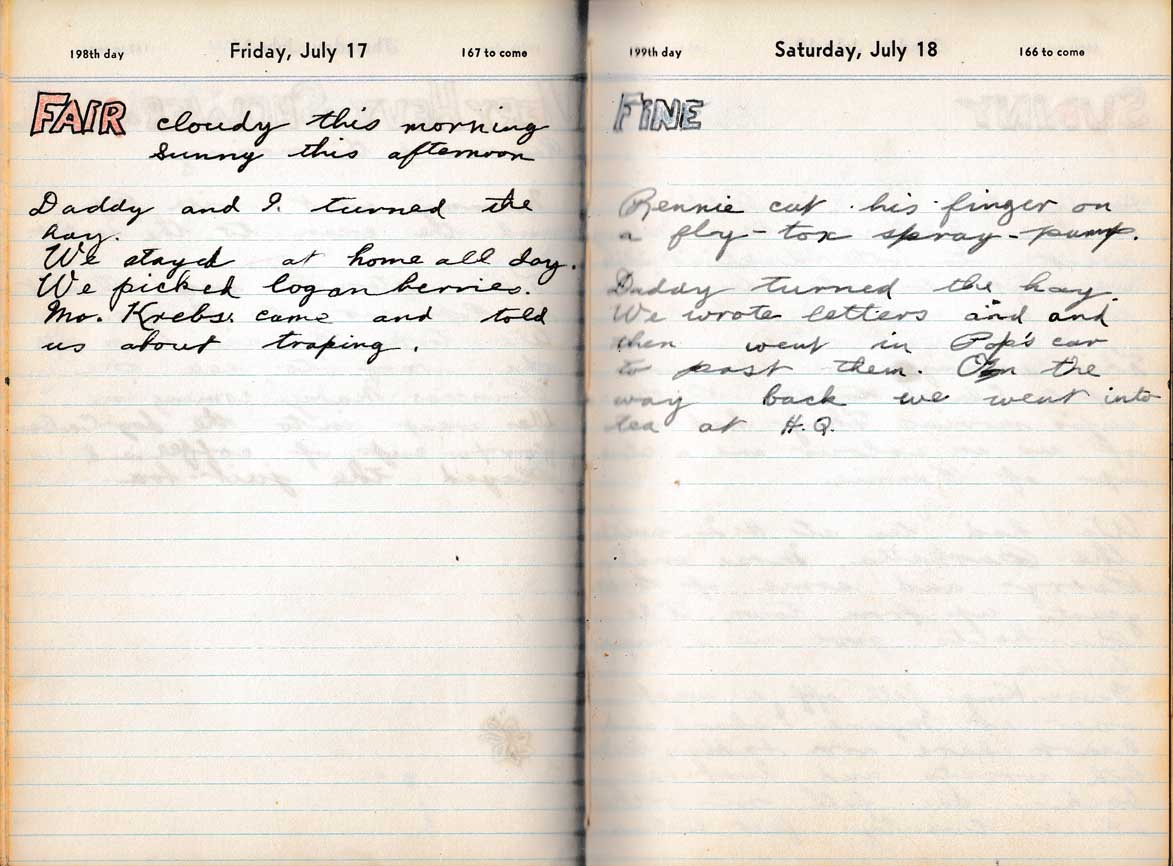 198th day Friday, July 17 167 to come
FAIR cloudy this morning
sunny this afternoon
Daddy and I. turned the
hay.
We stayed at home all day.
We picked loganberries.
Mr. Krebs. came and told
us about traping.
199th day Saturday, July 18 166 to come
FINE
Rennie cut his finger on
a fly-tox spray-pump.
Daddy turned the hay.
We wrote letters and and
then went in Pop's car
to post them. On the
way back we went into
tea at H.Q.